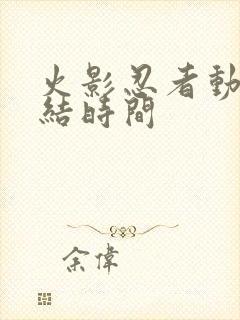 火影忍者動
結時間
余偉